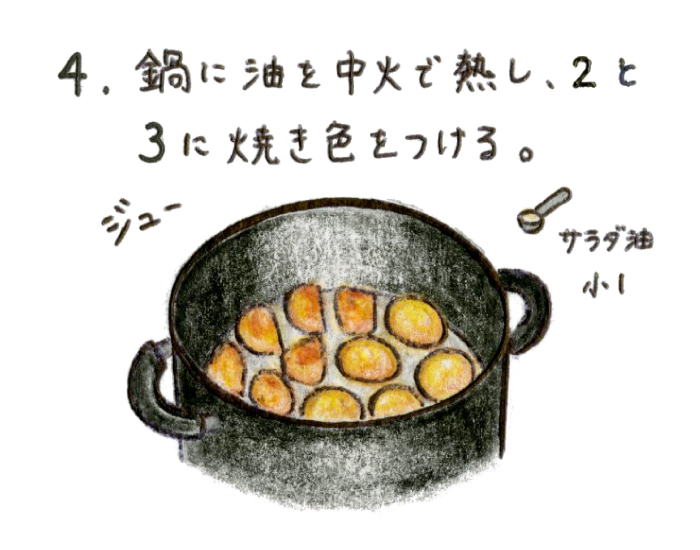 4. 鍋に油を中火で熱し、2と
3に焼き色をつける。
ジュー
サラダ油
小1